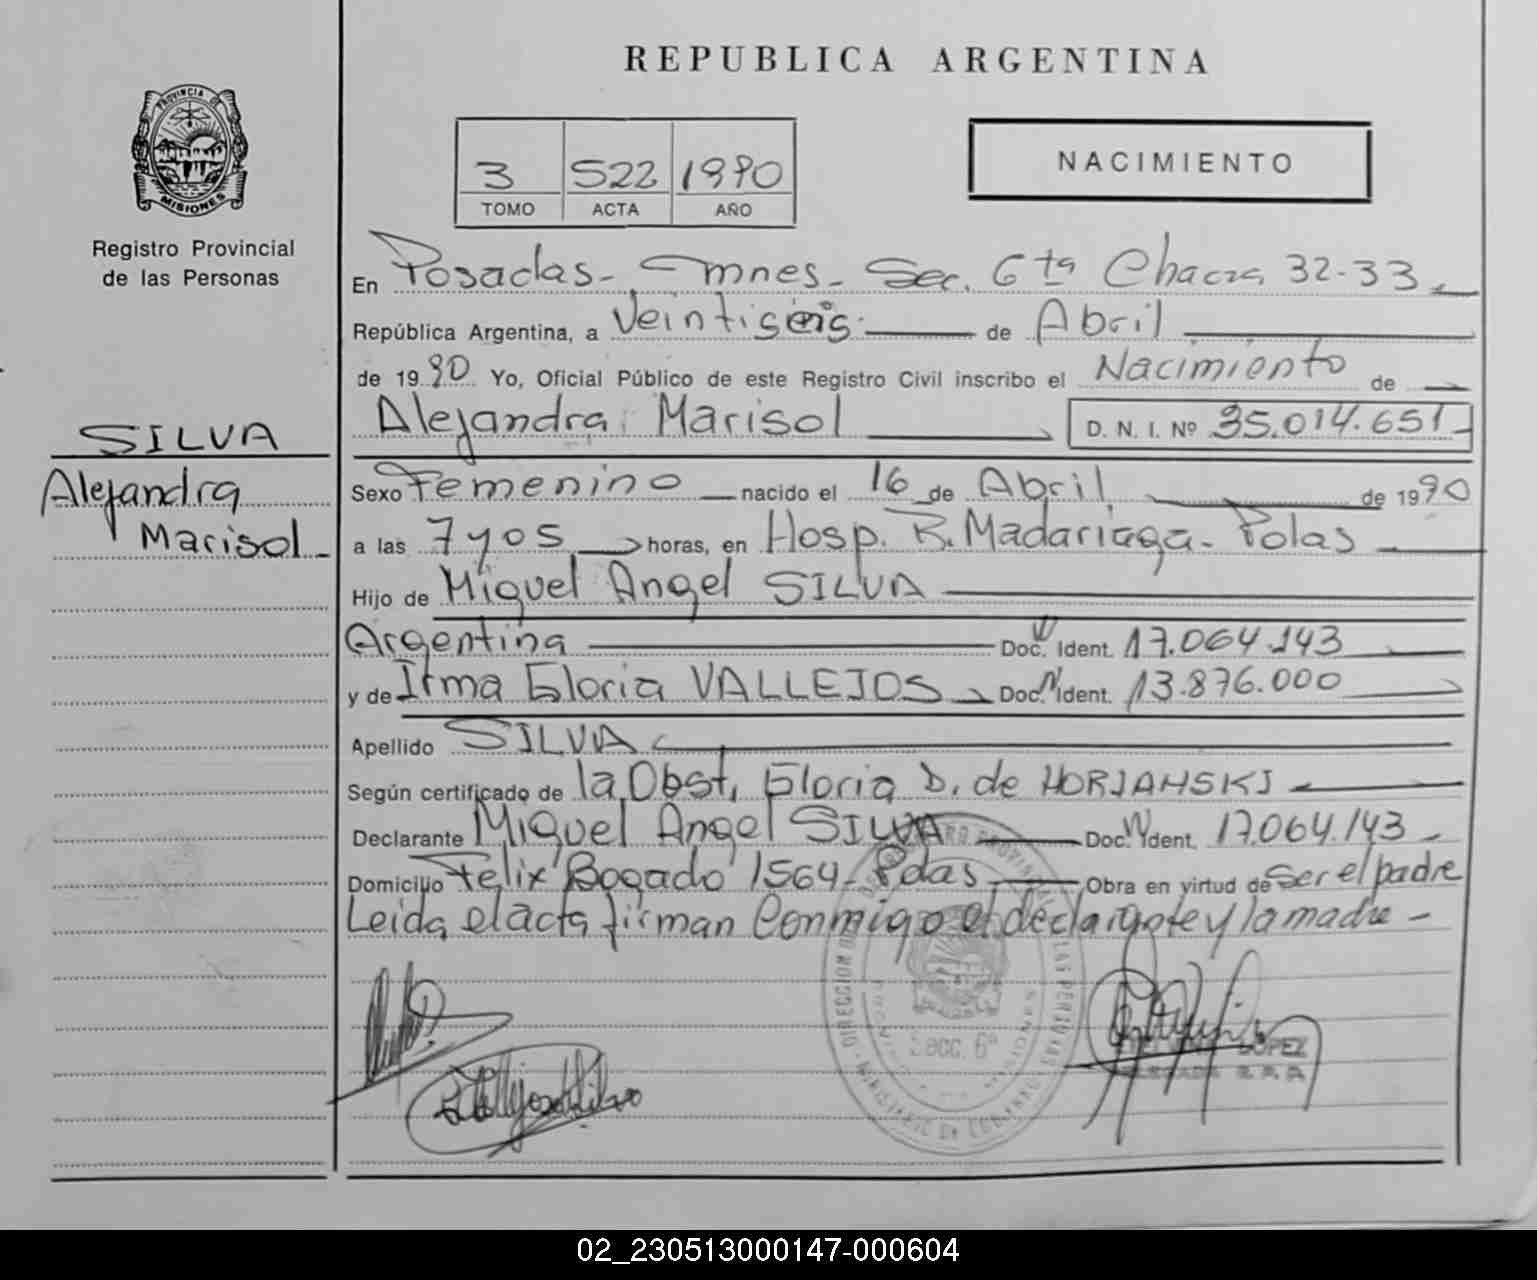 REPUBLICA ARGENTINA
PROVINCIA DE
MISIONES
Registro Provincial
de las Personas
3 522 1990
TOMO ACTA AÑO
NACIMIENTO
En Posadas - mnes - Sec. 6ta Chacra 32-33
República Argentina, a Veintiseis de Abril
de 1990 Yo, Oficial Público de este Registro Civil inscribo el Nacimiento de
Alejandra Marisol D. N. I. Nº 35.014.651
SILVA
Alejandra
Marisol
Sexo Femenino nacido el 16 de Abril de 1990
a las 7 y 05 horas, en Hosp. R. Madariaga - Polas
Hijo de Miguel Angel SILVA
Argentina Doc. Ident. 17.064.143
y de Irma Gloria VALLEJOS Doc. Ident. 13.876.000
Apellido SILVA
Según certificado de la Obst. Gloria D. de
Declarante Miguel Angel SILVA Doc. Ident. 17.064.143
Domicilio Felix Bogado 1564 - Pdas Obra en virtud de Ser el padre
Leida el acta firman Conmigo el declarante y la madre -
SECC. 6ª
LOPEZ
02_230513000147-000604